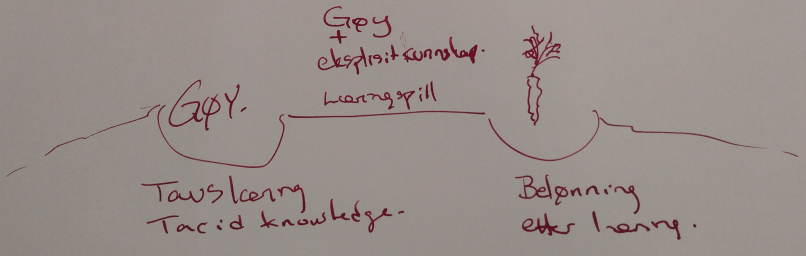 Gøy
+
eksplisit kunnskap.
Læringspill
GØY.
Taus læring
Tacid knowledge.
Belønning
etter læring.